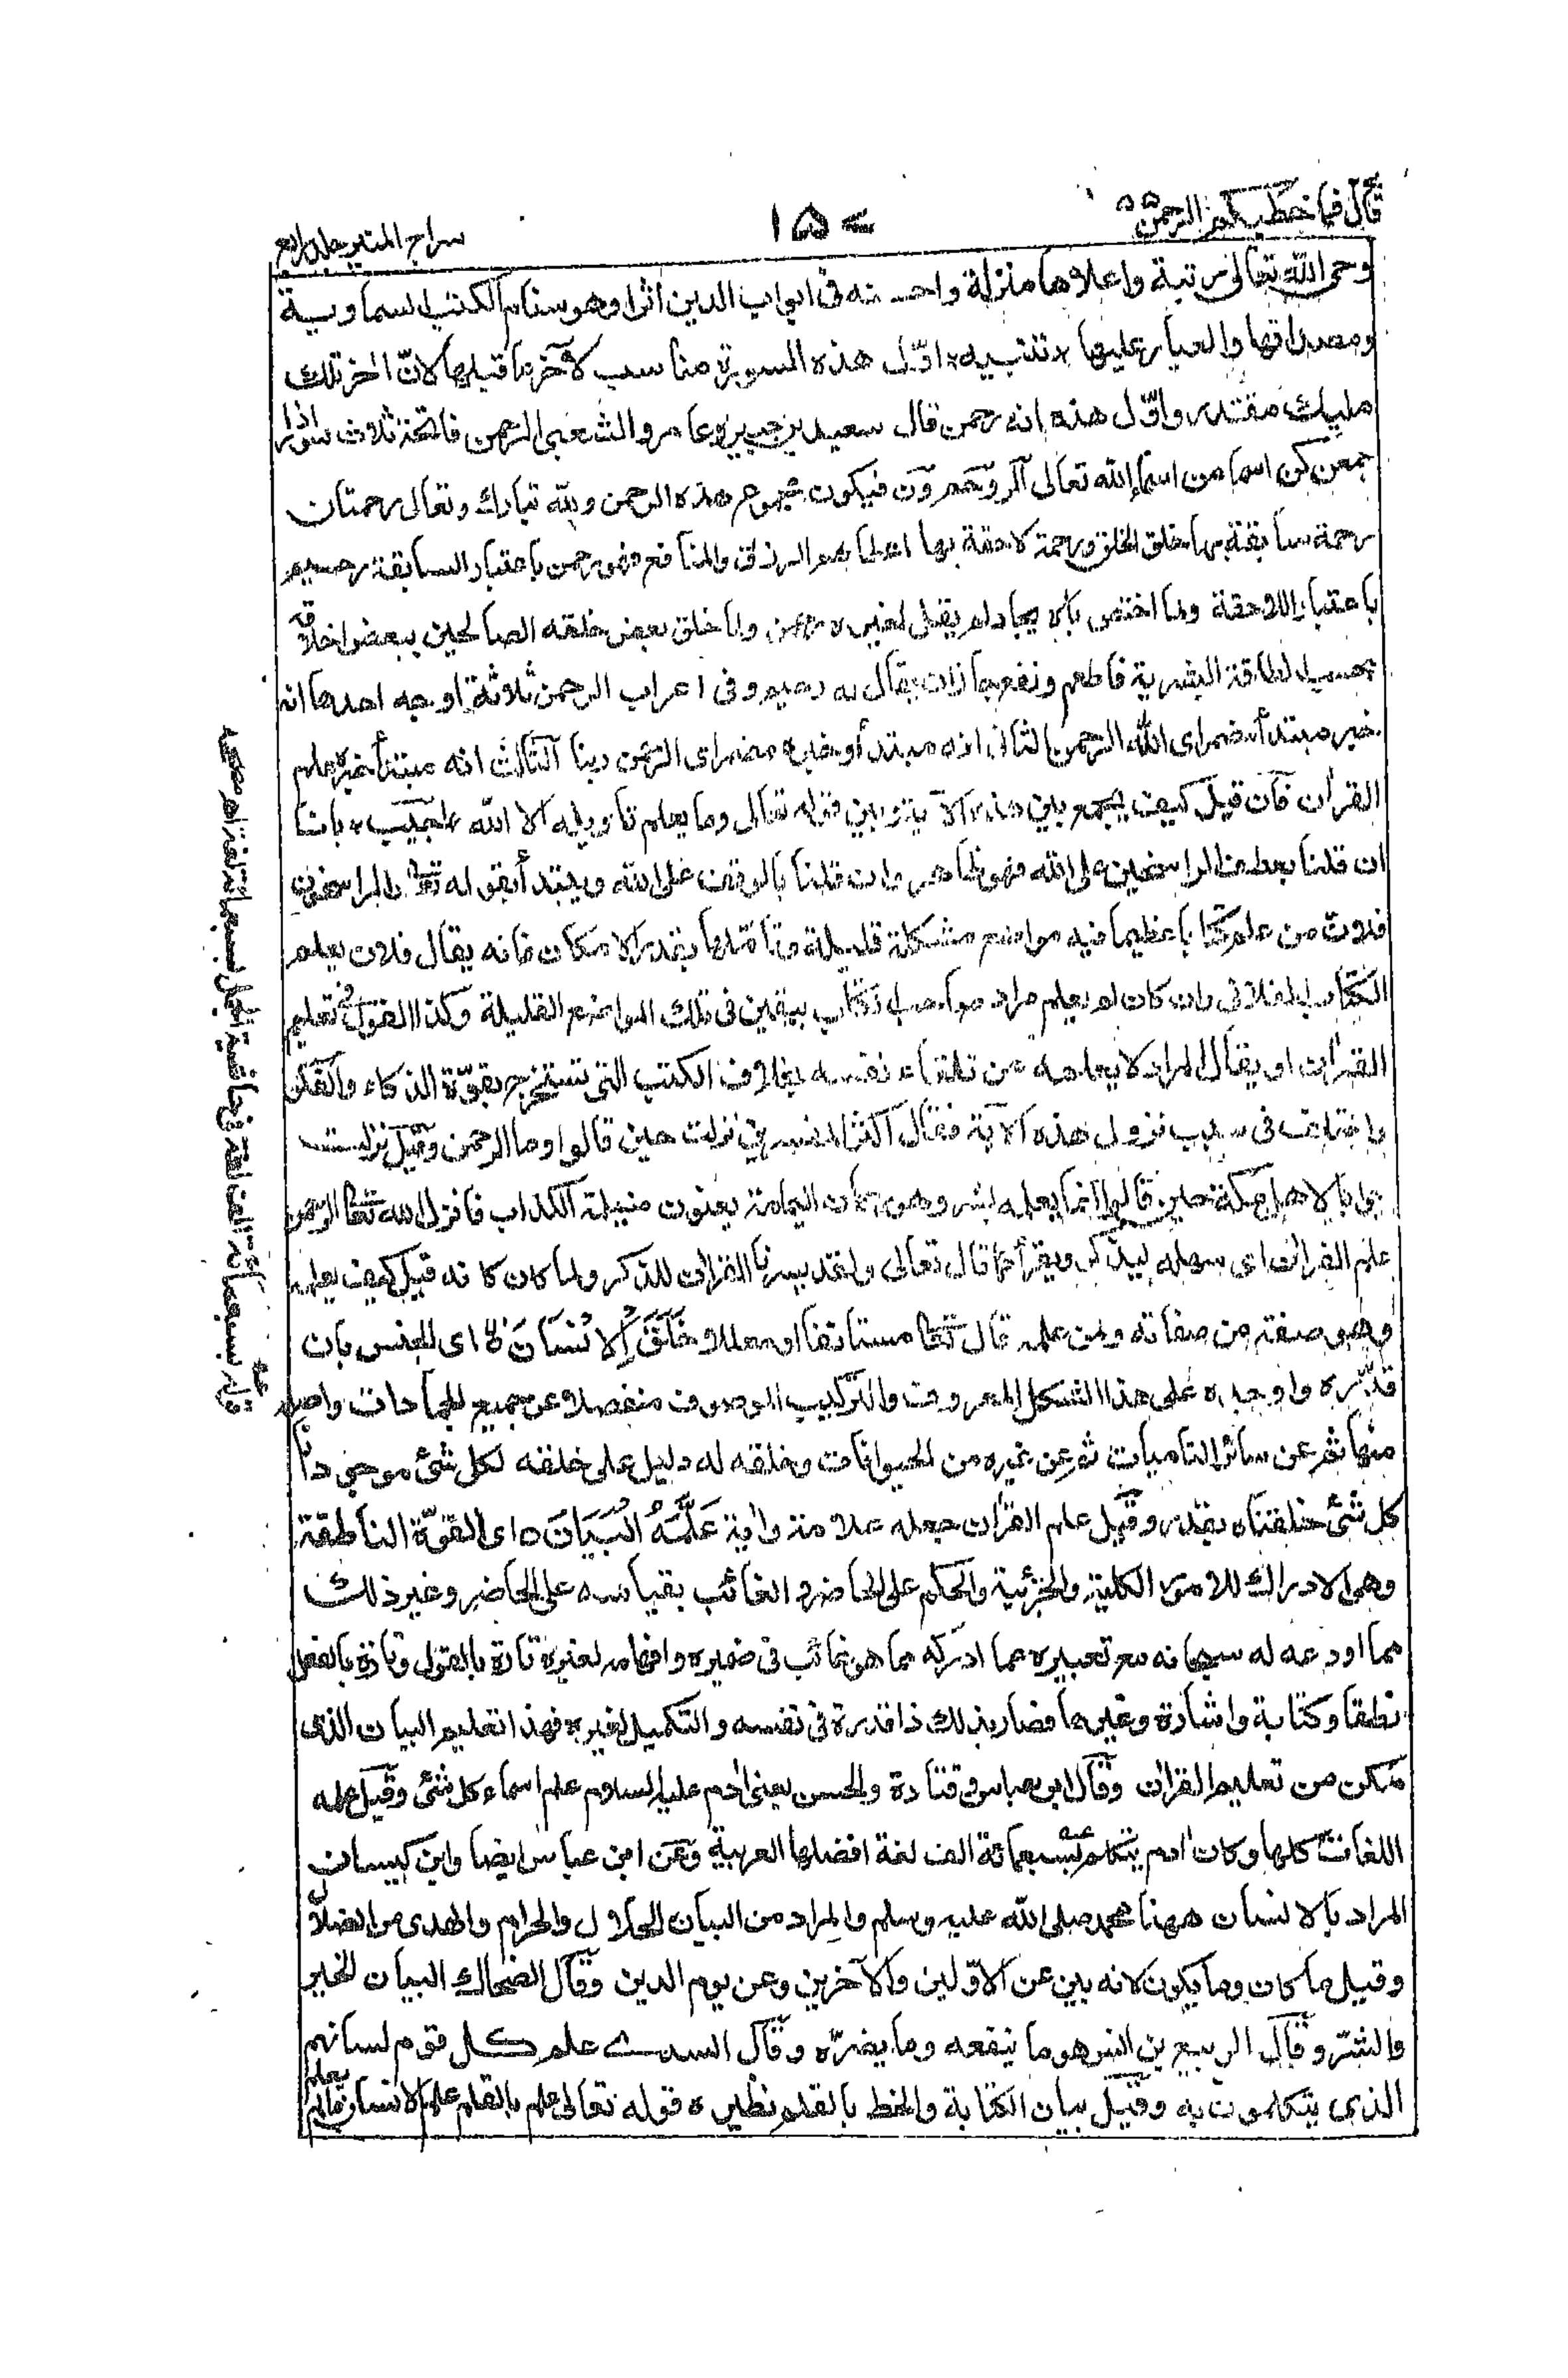 قال فما خطبكم الرحمن ۵۵
۱۵۰
سراج المنير جلد رابع
وحى الله تعالى رتبة واعلاها منزلة واحسنه فى ابواب الدين اثرا وهو سنام الكتب السماوية
ومصداقها والعيار عليها تنبيه اوّل هذه السورة مناسب لآخر ما قبلها لانّ اٰخر تلك
مليك مقتدر واوّل هذه انه رحمن قال سعيد بن جبير وعامر والشعبى الرحمن فاتحة ثلاث سور اذا
جمعن كن اسما من اسماء الله تعالى الر وحم ون فيكون مجموع هذه الرحمن ولله تبارك وتعالى رحمتان
رحمة سابقة بها خلق الخلق ورحمة لاحقة بها اعطاهم الرزق والمنافع فهو رحمن باعتبار السابقة رحيم
باعتبار اللاحقة ولما اختص بالايجاد لم يقل لغيره رحمن ولما خلق بعض خلقه الصالحين ببعض اخلاقه
بحسب الطاقة البشرية فاطعم ونفع جاز ان يقال له رحيم وفى اعراب الرحمن ثلاثة اوجه احدها انه
خبر مبتدأ مضمر اى الله الرحمن الثانى انه مبتدأ وخبره مضمر اى الرحمن ربنا الثالث انه مبتدأ خبره علم
القراٰن فان قيل كيف يجمع بين هذه الآية وبين قوله تعالى وما يعلم تأويله الا الله اجيب بانا
ان قلنا بعطف الراسخين على الله فهو ظاهر وان قلنا بالوقف على الله ويبتدأ بقوله تعالى والراسخون
فلان من علم كتابا عظيما فيه مواضع مشكلة قليلة وتأملها بقدر الامكان فانه يقال فلان يعلم
الكتاب الفلانى وان كان لم يعلم مراد صاحب الكتاب بيقين فى تلك المواضع القليلة وكذا القول فى تعليم
القراٰن او يقال المراد لا يعلمه من تلقاء نفسه بخلاف الكتب التى تستخرج بقوّة الذكاء والفكر
واختلف فى سبب نزول هذه الآية فقال اكثر المفسرين نزلت حين قالوا وما الرحمن وقيل نزلت
جوابا لاهل مكة حين قالوا انما يعلمه بشر وهو رحمٰن اليمامة يعنون مسيلمة الكذاب فانزل الله تعالى الرحمن
علم القراٰن اى سهله ليذكر ويقرأ كما قال تعالى ولقد يسرنا القراٰن للذكر ولما كان كانه قيل كيف يعلمه
وهو صفة من صفاته ولمن علمه قال تعالى مستانفا او معللا خَلَقَ الْاِنْسَانَ اى الجنس بان
قدّره واوجده على هذا الشكل المعروف والتركيب الموصوف منفصلا عن جميع الجمادات واصله
منها ثم عن سائر الناميات ثم عن غيره من الحيوانات وخلقه له دليل على خلقه لكل شئ موجود انا
كل شئ خلقناه بقدر وقيل علم القراٰن جعله علامة واٰية عَلَّمَهُ الْبَيَانَ اى القوّة الناطقة
وهو الادراك للامور الكلية والجزئية والحكم على الحاضر والغائب بقياسه على الحاضر وغير ذلك
مما اودعه له سبحانه مع تعبيره عما ادركه مما هو غائب فى ضميره وافهامه لغيره تارة بالقول وتارة بالفعل
نطقا وكتابة واشارة وغيرها فصار بذلك ذا قدرة فى نفسه والتكميل لغيره فهذا تعليم البيان الذى
مكن من تعليم القراٰن وقال ابن عباس وقتادة والحسن يعنى اٰدم عليه السلام علم اسماء كل شئ وقيل علمه
اللغات كلها وكان اٰدم يتكلم بسبعمائة الف لغة افضلها العربية وعن ابن عباس ايضا وابن كيسان
المراد بالانسان ههنا محمد صلى الله عليه وسلم والمراد من البيان الحلال والحرام والهدى من الضلال
وقيل ما كان وما يكون لانه بين عن الاوّلين والآخرين وعن يوم الدين وقال الضحاك البيان الخير
والشرّ وقال الربيع بن انس هو ما ينفعه وما يضرّه وقال السدى علم كل قوم لسانهم
الذى يتكلمون به وقيل بيان الكتابة والخط بالقلم نظيره قوله تعالى علم بالقلم علم الانسان مالم يعلم
قوله بسبعمائة الف لغة وفى حاشية الجمل بسبعمائة لغة اهـ مصححه